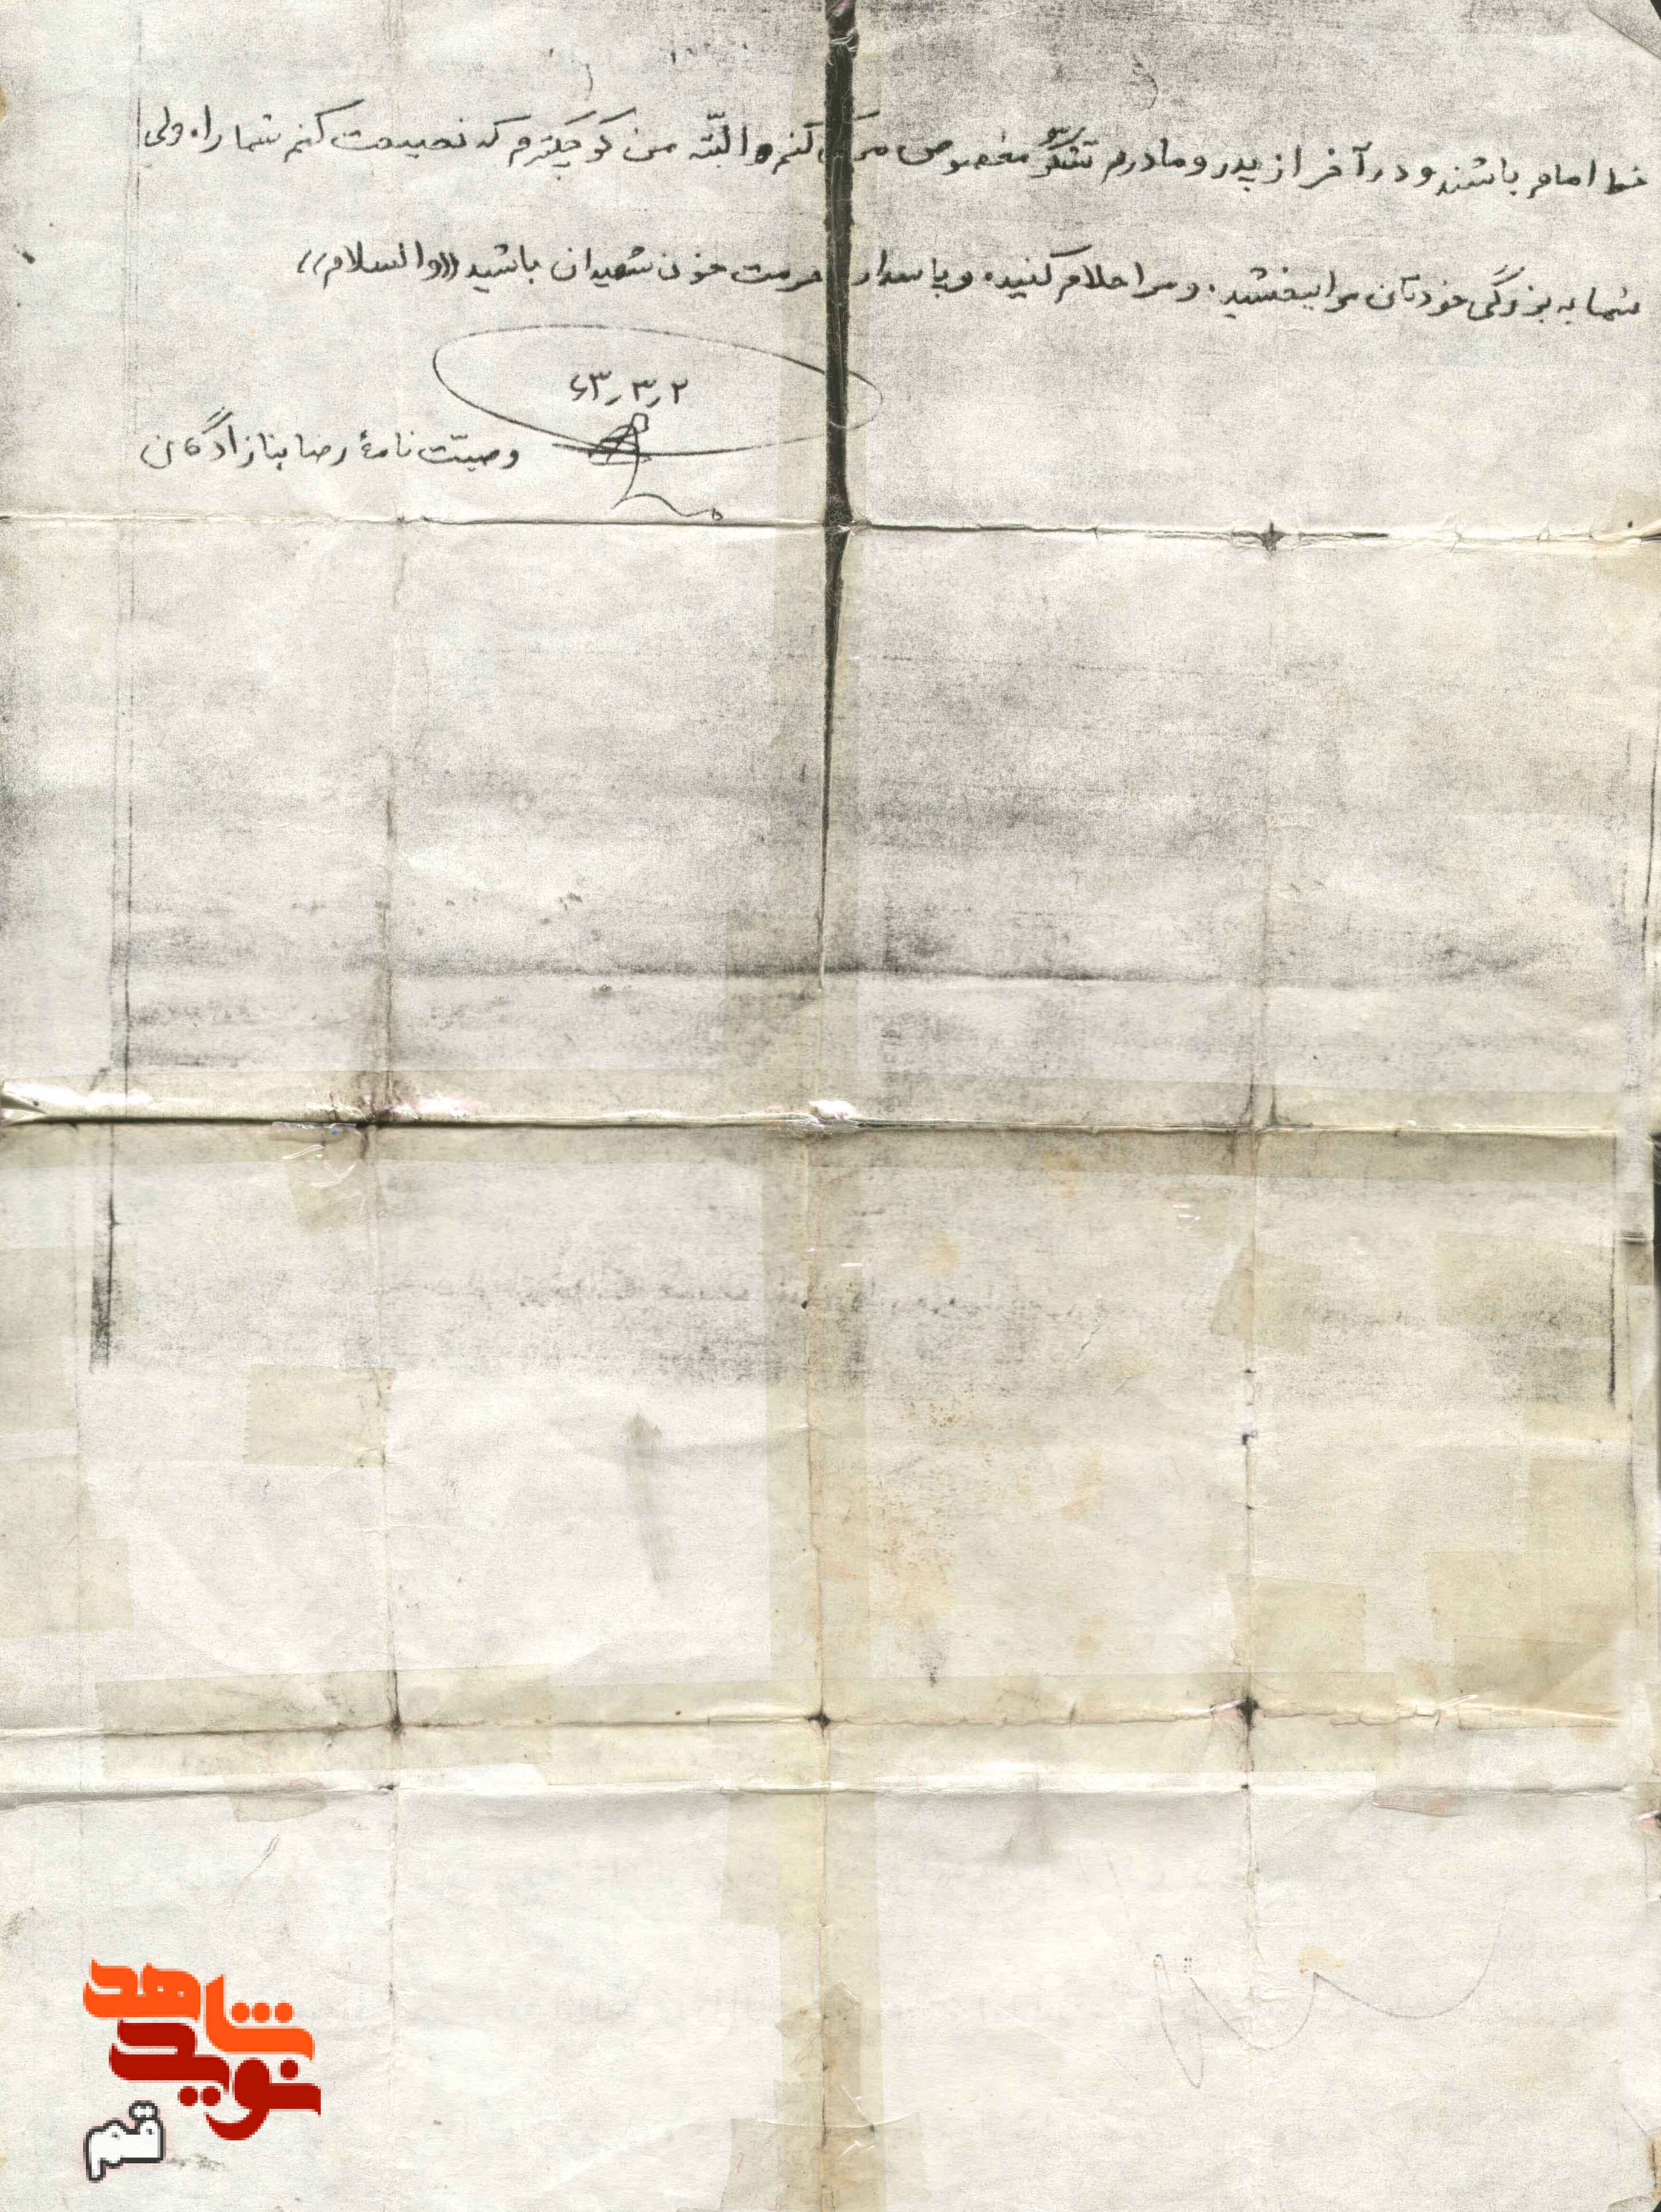 خط امام باشند و در آخر از پدر و مادرم تشکر مخصوص می کنم و البتّه من کوچکترم که نصیحت کنم شما را، ولی
شما به بزرگی خودتان مرا ببخشید. و مرا حلام کنید، و پاسدار حرمت خون شهیدان باشید ((والسلام))
۶۳٫۳٫۲
وصیّت نامهٔ رضا بنازادگان
شاهد
نوید
قم